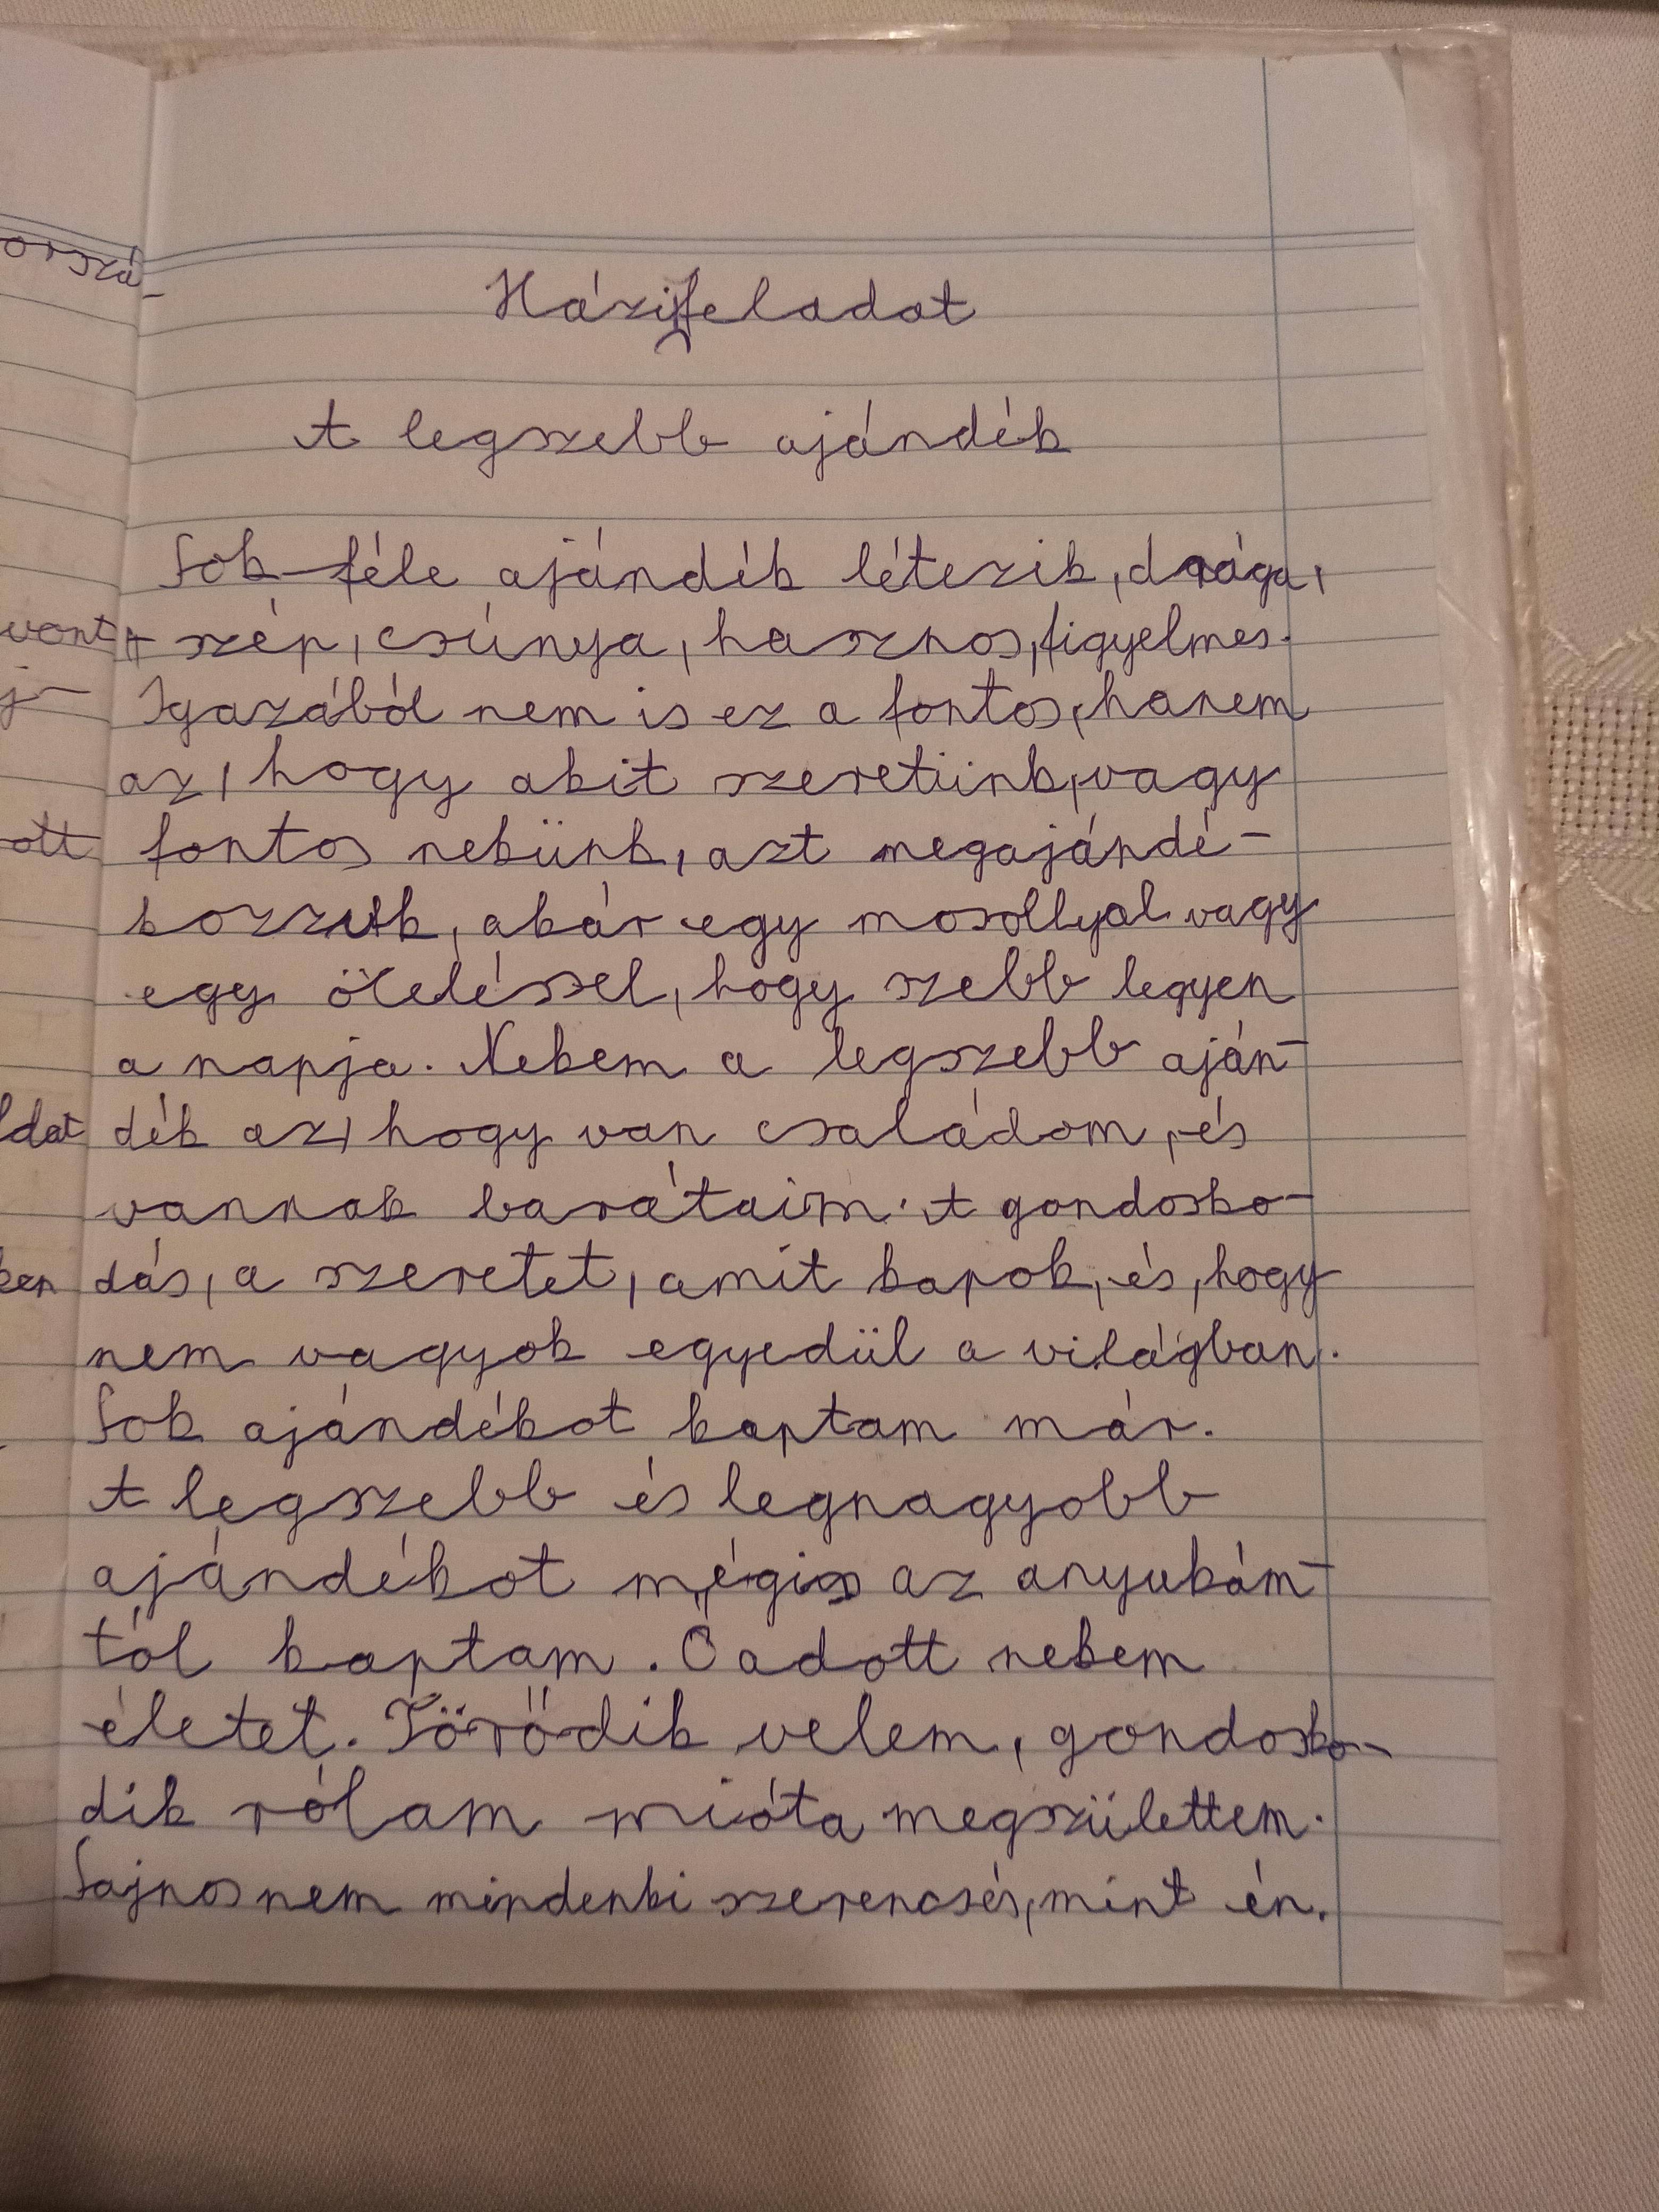 orszá-
Házifeladat
A legszebb ajándék
Sok-féle ajándék létezik, drága,
vont
szép, csúnya, hasznos, figyelmes.
j-
Igazából nem is ez a fontos, hanem
az, hogy akit szeretünk, vagy
ott
fontos nekünk, azt megajándé-
kozzuk, akár egy mosollyal vagy
egy öleléssel, hogy szebb legyen
a napja. Nekem a legszebb aján-
ldat
dék az, hogy van családom, és
vannak barátaim. A gondosko-
ken
dás, a szeretet, amit kapok, és, hogy
nem vagyok egyedül a világban.
Sok ajándékot kaptam már.
A legszebb és legnagyobb
ajándékot mégis az anyukám-
tól kaptam. Ő adott nekem
életet. Törődik velem, gondosko-
dik rólam mióta megszülettem.
Sajnos nem mindenki szerencsés, mint én.